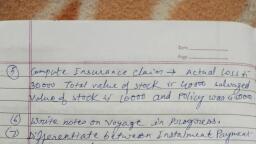 Date
Page
(5) Compute Insurance claim → Actual loss is
30000 Total value of stock is 40000 salvaged
Value of stock is 10000 and policy was
(6) Write notes on Voyage in Progress.
(7) Differentiate between Instalment Payment